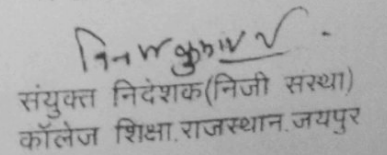 संयुक्त निदेशक(निजी संस्था)
कॉलेज शिक्षा.राजस्थान.जयपुर